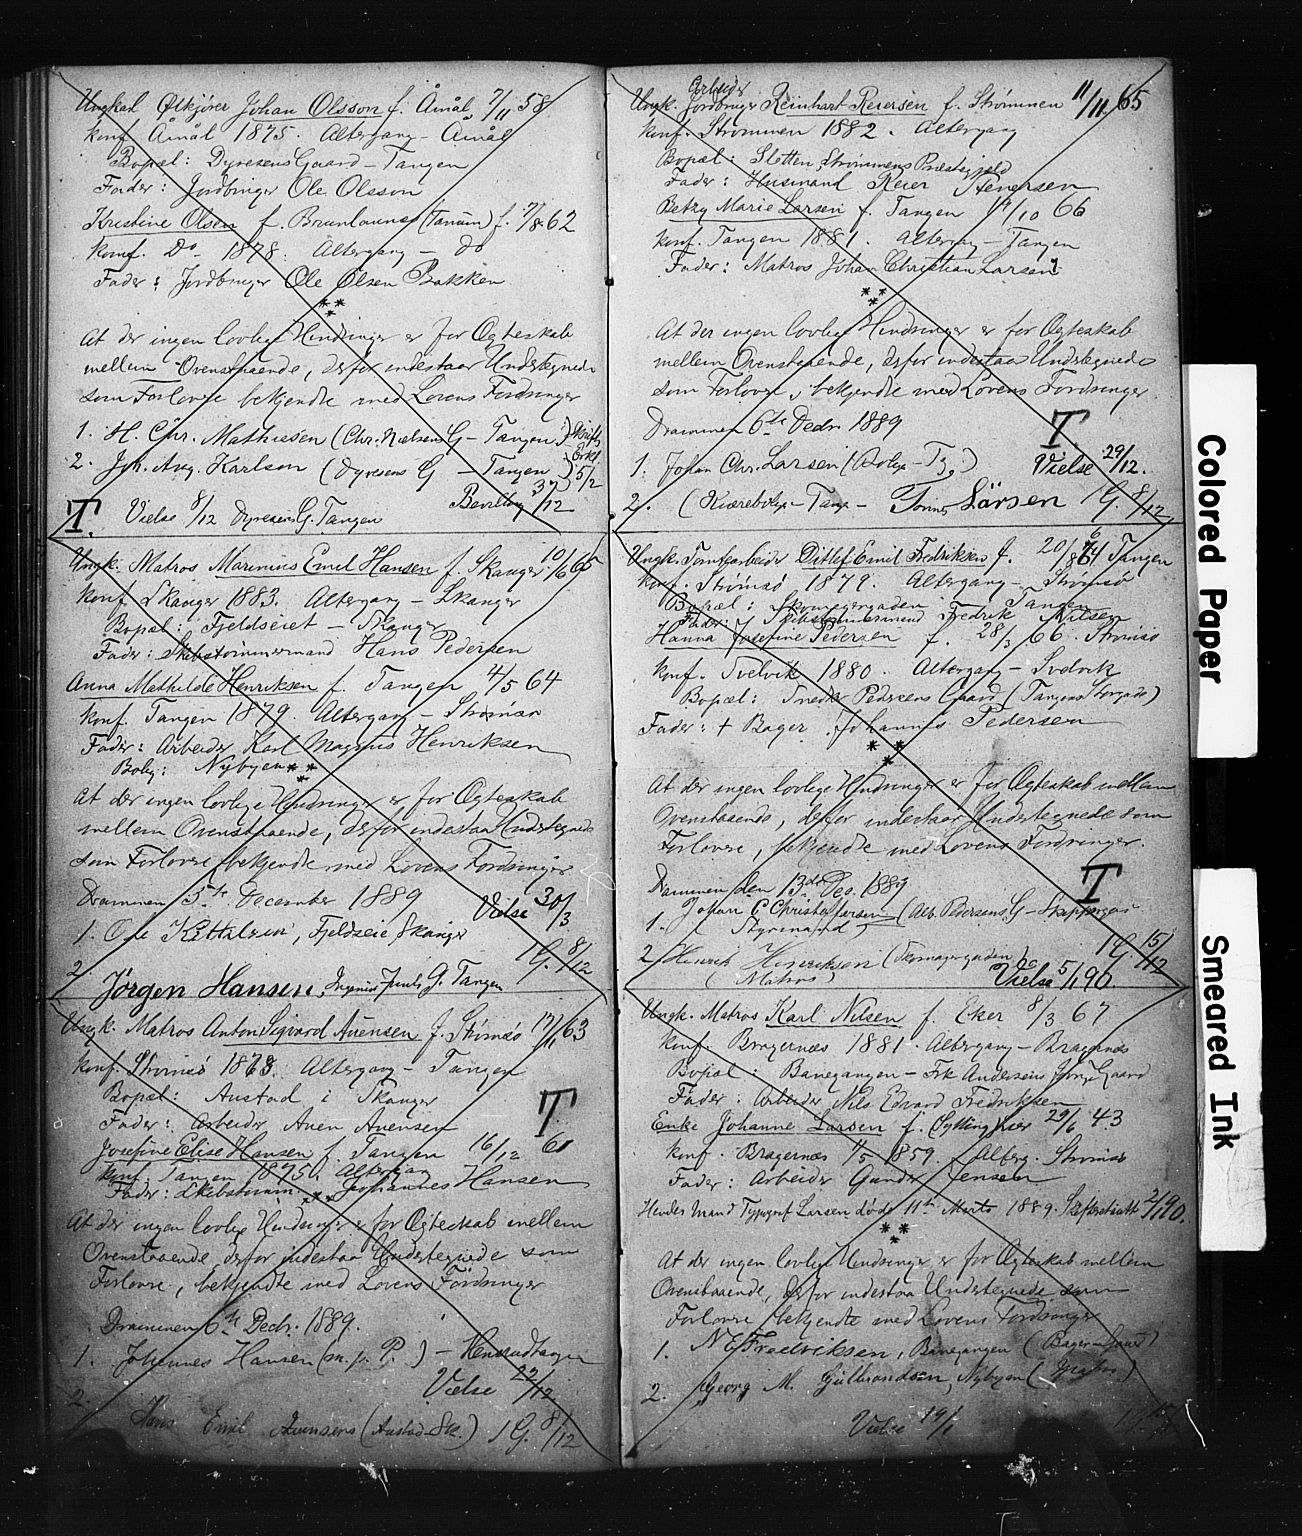 Ungkarl Ølkjører Johan Olsson f. Åmål 7/11 58
konf. Åmål 1875. Altergang - Åmål
Bopæl: Dyresens Gaard - Tangen
Fader: Jordbruger Ole Olsson
Kristine Olsen f. Brunlaunæs (Tanum) f. 7/8 62
konf. Do 1878. Altergang - Do
Fader: Jordbruger Ole Olsen Bakken
At der ingen lovlige Hindringer er for Ægteskab
mellem Ovenstaaende, derfor indestaar Undertegnede
som Forlovere bekjendte med Lovens Fordringer
1. H. Chr. Mathiesen (Chr. Nielsens G - Tangen)
2. Joh. Aug. Karlson (Dyresens G - Tangen) 5/2
T. Vielse 8/12 Dyresens G. Tangen
Ungk. Matros Marinius Emil Hansen f. Skanger 10/6 65
konf. Skanger 1883. Altergang - Skanger
Bopæl: Fjeldseiet - Skanger
Fader: Skibstømmermand Hans Pedersen
Anna Mathilde Henriksen f. Tangen 4/5 64
konf. Tangen 1879. Altergang - Strømsø
Fader: Arbeider Karl Magnus Henriksen
Bolig: Nybyen
At der ingen lovlige Hindringer er for Ægteskab
mellem Ovenstaaende, derfor indestaa Undertegnede
som Forlovere bekjendte med Lovens Fordringer
Drammen 5te December 1889 Vielse 30/3
1. Ole Kittelsen, Fjeldseie Skanger
1 G. 8/12
2. Jørgen Hansen, G. Tangen
Ungk. Matros Anton Sigvard Auensen f. Strømsø 17/11 63
konf. Strømsø 1878. Altergang - Tangen
Bopæl: Austad i Skanger
Fader: Arbeider Auen Auensen T.
Josefine Elise Hansen f. Tangen 16/12 60
konf. Tangen 1875. Altergang
Fader: Skibstømm. Johannes Hansen
At der ingen lovlige Hindringer er for Ægteskab mellem
Ovenstaaende, derfor indestaa Undertegnede som
Forlovere, bekjendte med Lovens Fordringer
Drammen 6te Decbr. 1889.
1. Johannes Hansen (m. p. P.)
Vielse 22/12
2. Hans Emil Auensens (Austad - Sk.) 1 G. 8/12
Arbeider
Ungk. Jordbruger Reinhart Reiersen f. Strømmen 11/11 65
konf. Strømmen 1882. Altergang
Bopæl: Sletten, Strømmens Præstegjeld
Fader: Husmand Reier
Betzy Marie Larsen f. Tangen 14/10 66
konf. Tangen 1881. Altergang - Tangen
Fader: Matros Johan Christian Larsen
At der ingen lovlige Hindringer er for Ægteskab
mellem Ovenstaaende, derfor indestaar Undertegnede
som Forlovere, bekjendte med Lovens Fordringer.
Drammen 6te Decbr. 1889 T.
1. Johan Chr. Larsen Vielse 29/12.
2. Larsen 1 G. 8/12
Ungk. Tomtearbeider Ditlef Emil Fredriksen f. 20/8 64 Tangen
konf. Strømsø 1879. Altergang - Strømsø
Bopæl: Skomagergaden Tangen
Fader: Skibstømmermand Fredrik Nilsen
Hanna Josefine Pedersen f. 28/3 66. Strømsø
konf. Svelvik 1880. Altergang - Svelvik
Bopæl: Snedk. Pedersens Gaard (Tangens Storgade)
Fader: + Bager Johannes Pedersen
At der ingen lovlige Hindringer er for Ægteskab mellem
Ovenstaaende, derfor indestaar Undertegnede som
Forlovere, bekjendte med Lovens Fordringer.
Drammen den 13de Dec. 1889 T
1. Johan C Christoffersen (Alb. Pedersens G -
Styrmand)
2 Henrik Henriksen (Skomagergaden) 1 G. 15/12
(Matros) Vielse 5/1 90
Ungk. Matros Karl Nilsen f. Eker 8/3 67
konf. Bragernæs 1881. Altergang - Bragernæs
Bopæl: Banegangen - Frk Andersens Gaard
Fader: Arbeider Nils Edvard Fredriksen
Enke Johanne Larsen f. 29/6 43
konf. Bragernæs 1/5 1859. Alterg. Strømsø
Fader: Arbeider Gunder Jensen
Hendes Mand Typograf Larsen døde 11te Marts 1889. Skifteattest 2/1 90.
At der ingen lovlige Hindringer er for Ægteskab mellem
Ovenstaaende, derfor indestaa Undertegnede som
Forlovere bekjendte med Lovens Fordringer
1. N E Fredriksen, Banegangen
2. Georg M. Gulbrandsen, Nybyen
Vielse 19/1
Colored Paper
Smeared Ink